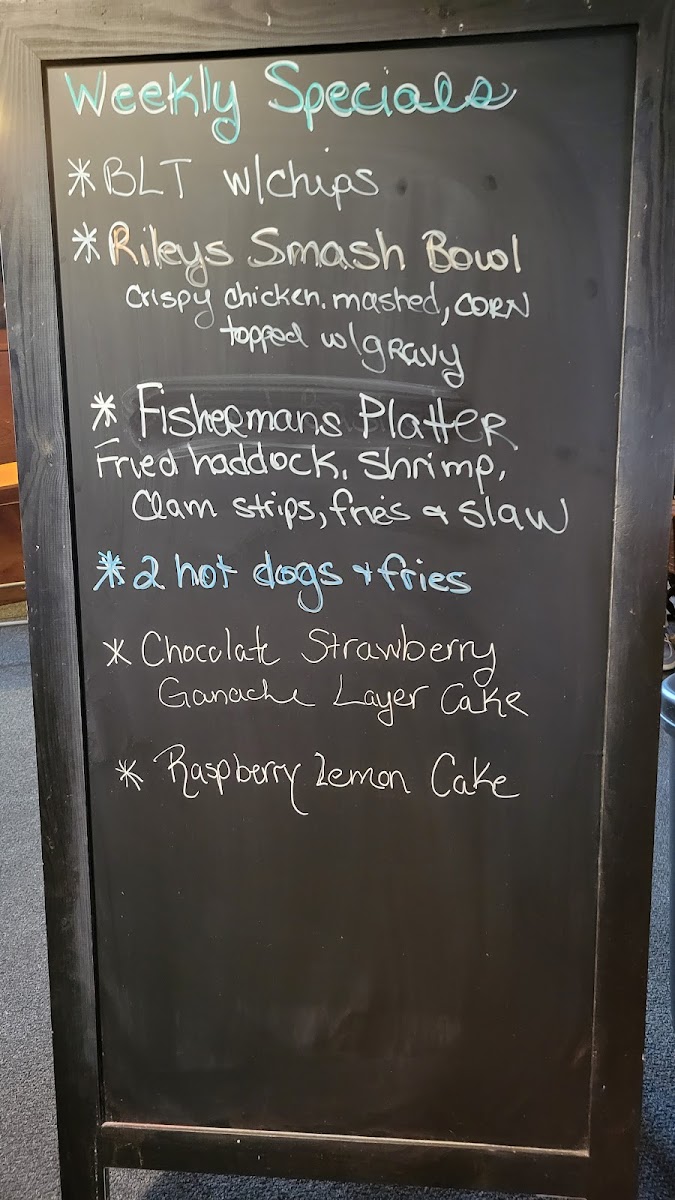 Weekly Specials
* BLT w/chips
* Rileys Smash Bowl
crispy chicken. mashed, CORN
topped w/gravy
* Fishermans Platter
Fried haddock, shrimp,
Clam strips, fries & slaw
* 2 hot dogs & fries
* Chocolate Strawberry
Ganache Layer Cake
* Raspberry Lemon Cake